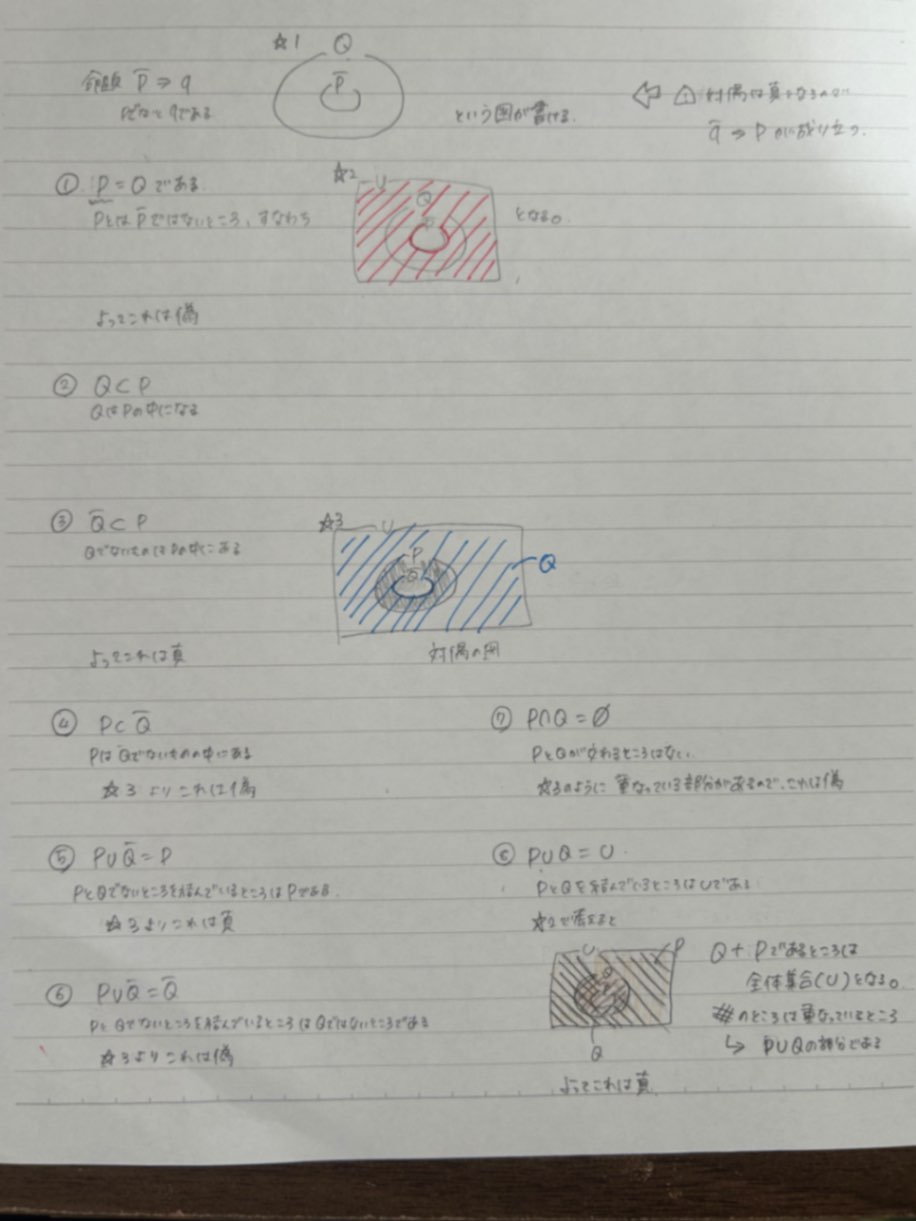 ☆1 Q
P̅
命題 P̅ ⇒ q
Pでないと qである
という図が書ける.
⇦ ⚠ 対偶は真となるので
q̅ ⇒ P が成り立つ.
① P = Q である.
Pとは P̅ ではないところ、すなわち
☆2 U
Q
P̅
となる。
よってこれは偽
② Q ⊂ P
Q は P の中になる
③ Q̅ ⊂ P
Qでないものは Pの中にある
☆3 U
P
Q̅
Q
よってこれは真
対偶の図
④ P ⊂ Q̅
Pは Qでないものの中にある
☆3 よりこれは偽
⑦ P∩Q = ∅
PとQが交わるところはない.
☆3のように 重なっている部分があるので、これは偽
⑤ P∪Q̅ = P
PとQでないところを結んでいるところは Pである.
☆3よりこれは真
⑧ P∪Q = U
PとQを結んでいるところはUである
☆2で考えると
U P
Q
Q + Pであるところは
全体集合(U)となる。
#のところは重なっているところ
↳ P∪Qの部分である
よってこれは真
⑥ P∪Q̅ = Q̅
PとQでないところを結んでいるところは Qではないところである
☆3よりこれは偽